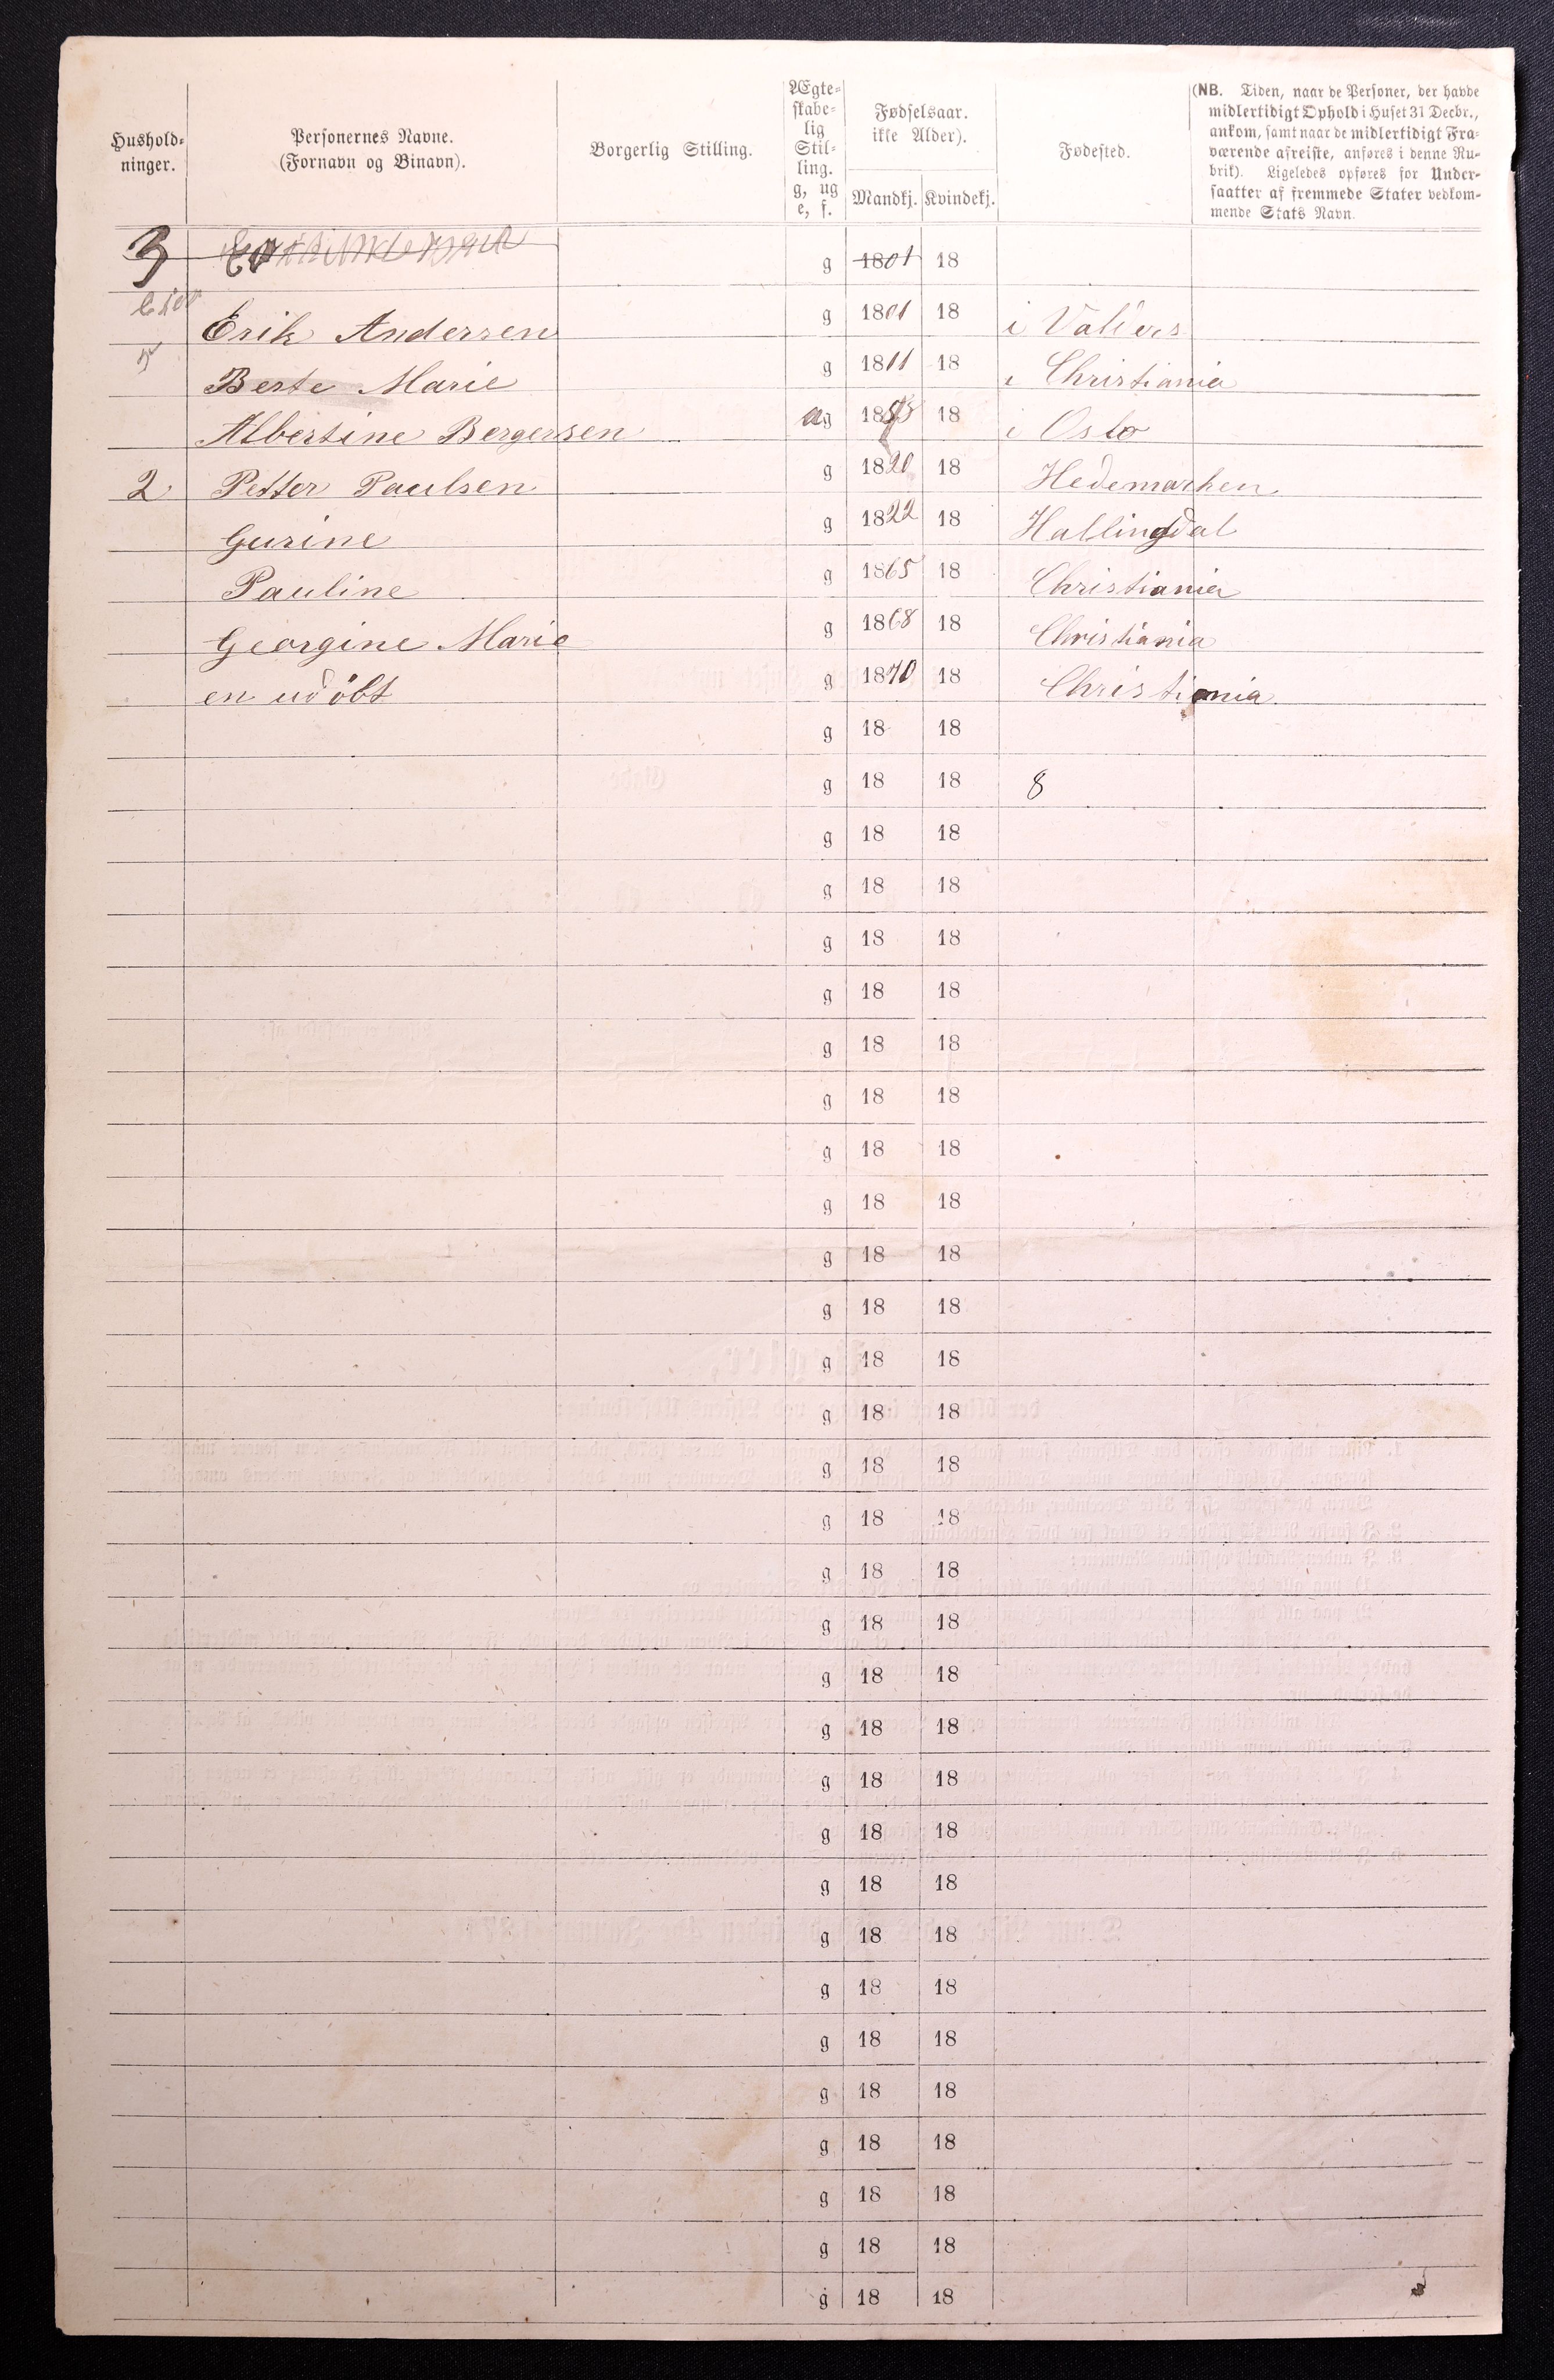 Hushold-
ninger.
Personernes Navne.
(Fornavn og Binavn).
Borgerlig Stilling.
Ægte-
skabe-
lig
Stil-
ling.
g, ug
e, f.
Fødselsaar.
ikke Alder).
Mandkj. Kvindekj.
Fødested.
(NB. Tiden, naar de Personer, der havde
midlertidigt Ophold i Huset 31 Decbr.,
ankom, samt naar de midlertidigt Fra-
værende afreiste, anføres i denne Ru-
brik). Ligeledes opføres for Under-
saatter af fremmede Stater vedkom-
mende Stats Navn.
3 g 1801 18
Erik Andersen g 1801 18 i Valders
Berte Marie g 1811 18 i Christiania
Albertine Bergersen ug 18 18 i Oslo
2 Petter Paulsen g 1820 18 Hedemarken
Gurine g 1822 18 Hallingdal
Pauline g 1865 18 Christiania
Georgine Marie g 1868 18 Christiania
en udöbt g 1870 18 Christiania
g 18 18
g 18 18 8
g 18 18
g 18 18
g 18 18
g 18 18
g 18 18
g 18 18
g 18 18
g 18 18
g 18 18
g 18 18
g 18 18
g 18 18
g 18 18
g 18 18
g 18 18
g 18 18
g 18 18
g 18 18
g 18 18
g 18 18
g 18 18
g 18 18
g 18 18
g 18 18
g 18 18
g 18 18
g 18 18
g 18 18
g 18 18